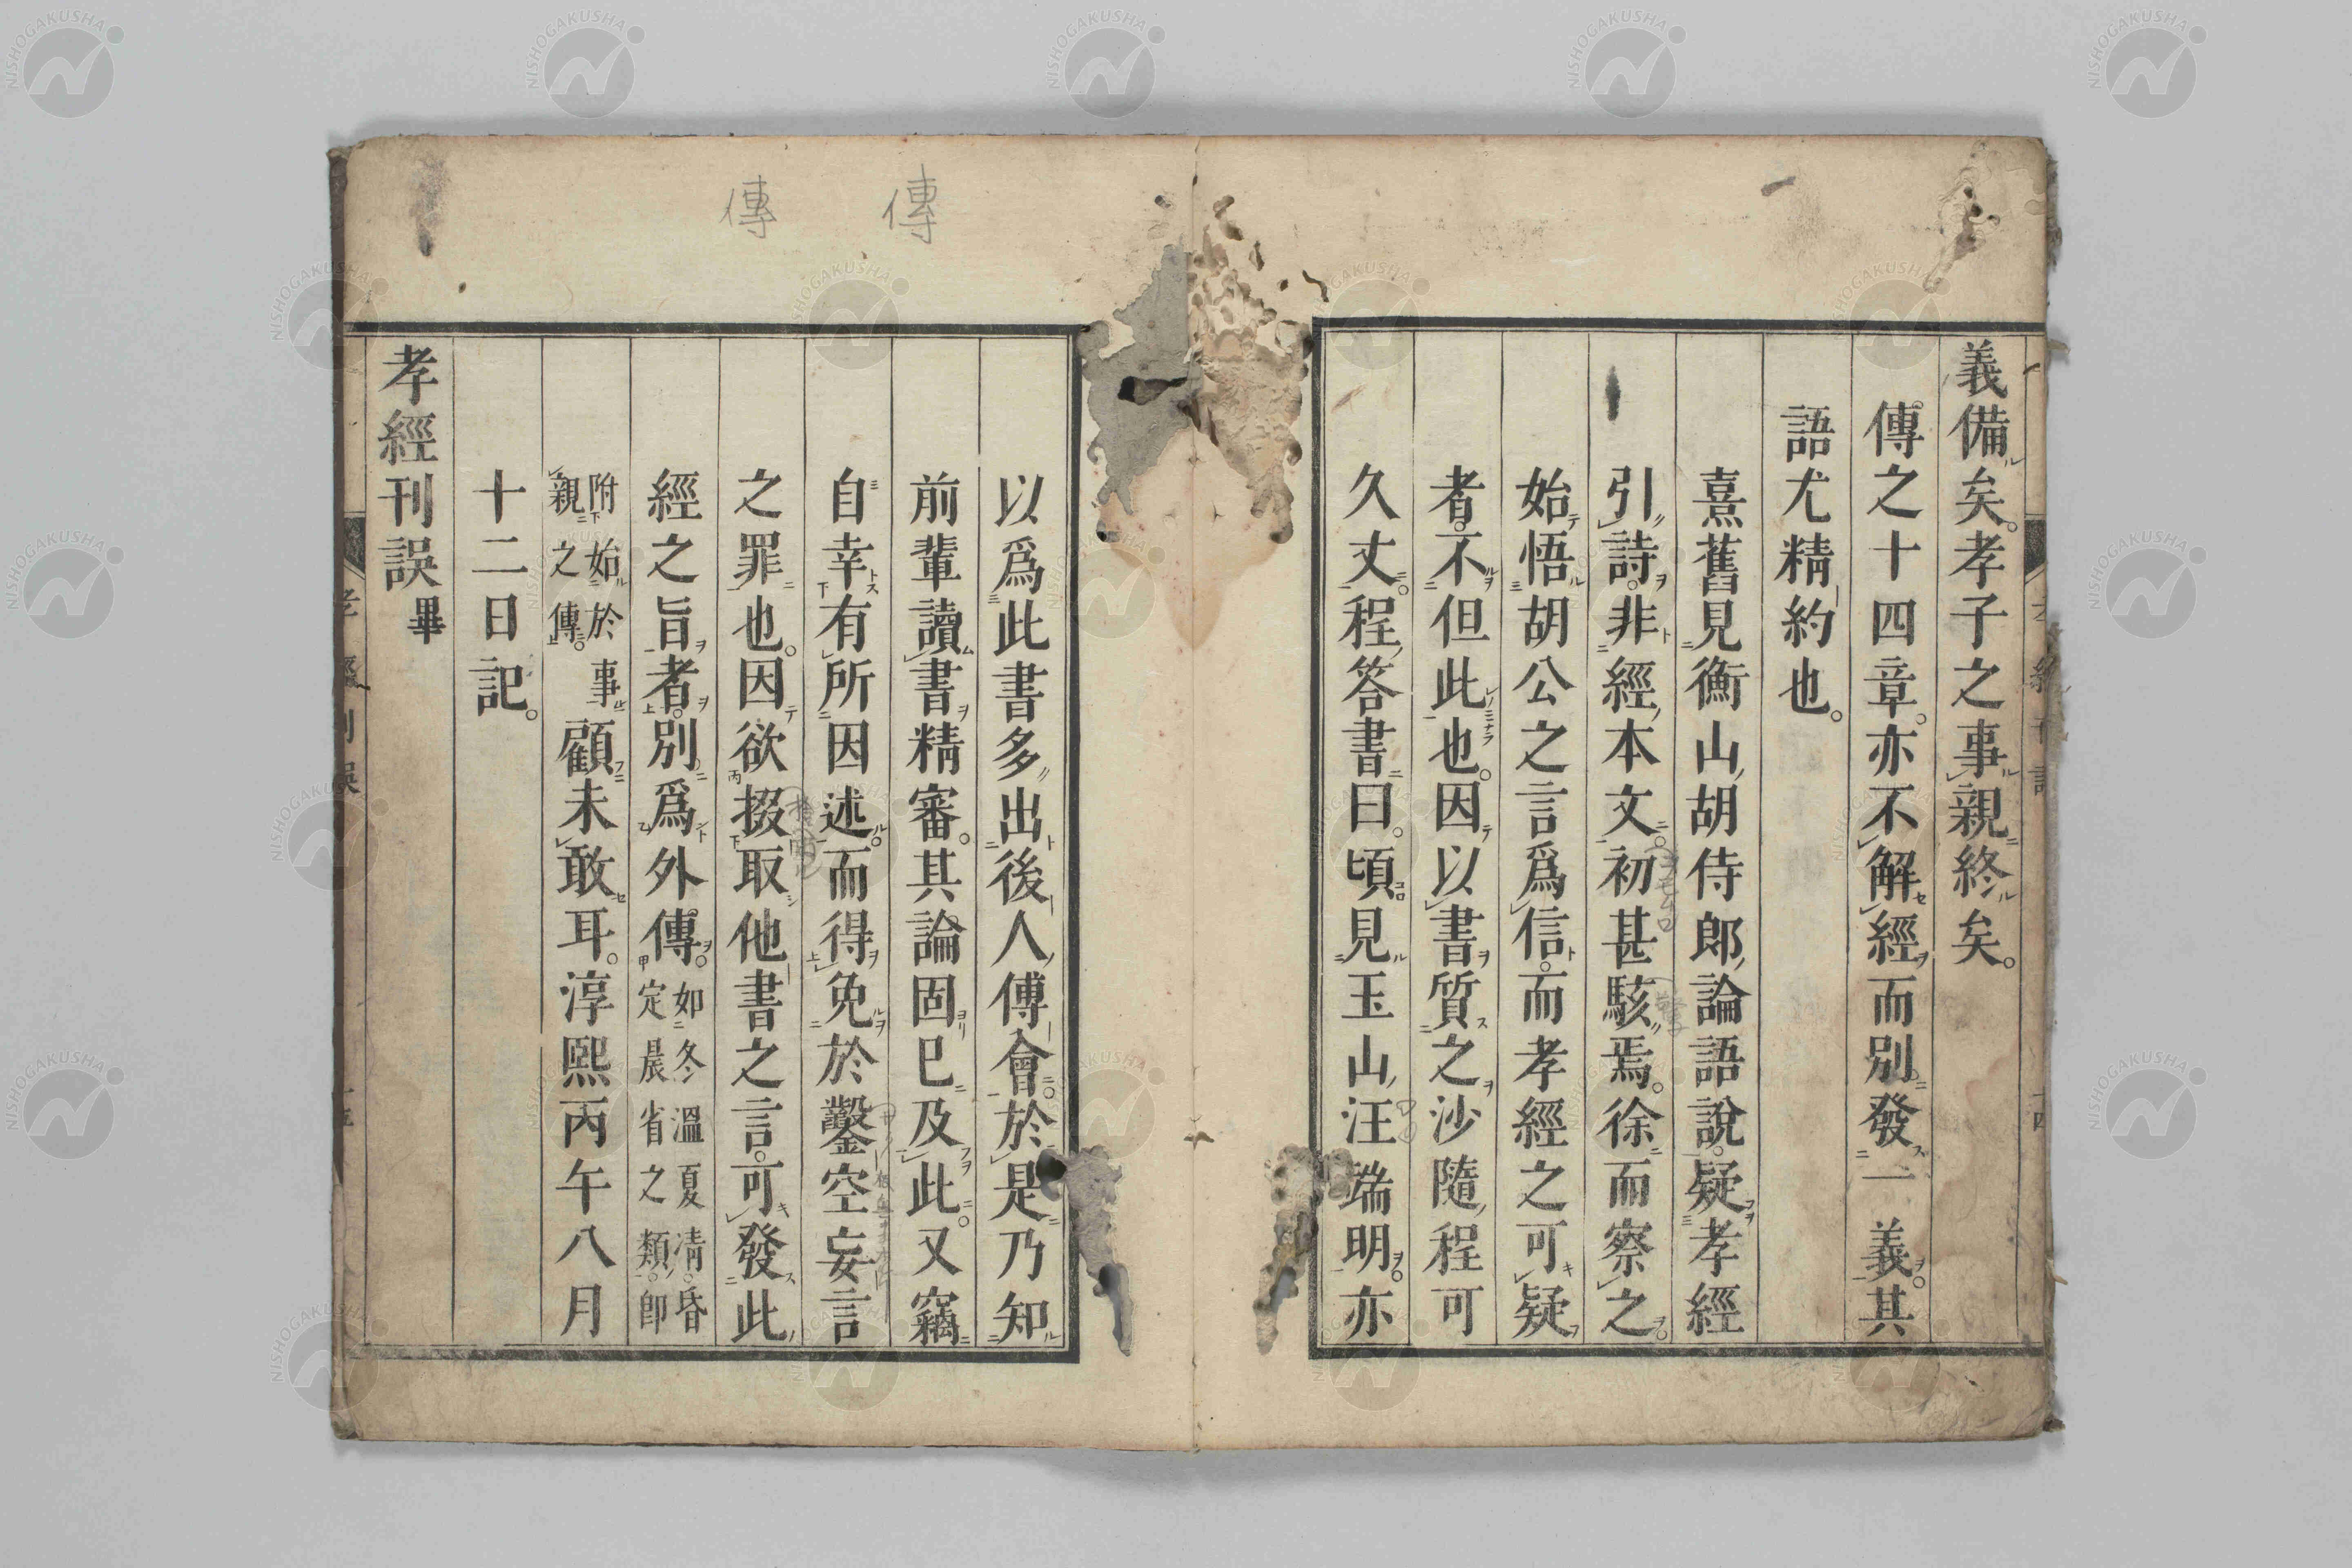 義備矣。孝子之事親終矣。
傳之十四章。亦不解經而別發一義。其
語尤精約也。
熹舊見衡山胡侍郎論語說。疑孝經
引詩。非經本文。初甚駭焉。徐而察之。
始悟胡公之言爲信。而孝經之可疑
者。不但此也。因以書質之沙隨程可
久丈。程答書曰。頃見玉山汪端明。亦
以爲此書多出後人傅會。於是乃知
前輩讀書精審。其論固已及此。又竊
自幸有所因述。而得免於鑿空妄言
之罪也。因欲掇取他書之言。可發此
經之旨者。別爲外傳。如冬溫夏凊。昏定晨省之類。即
附始於事親之傳。顧未敢耳。淳熙丙午八月
十二日記。
孝經刊誤畢
傳
傳
NISHOGAKUSHA